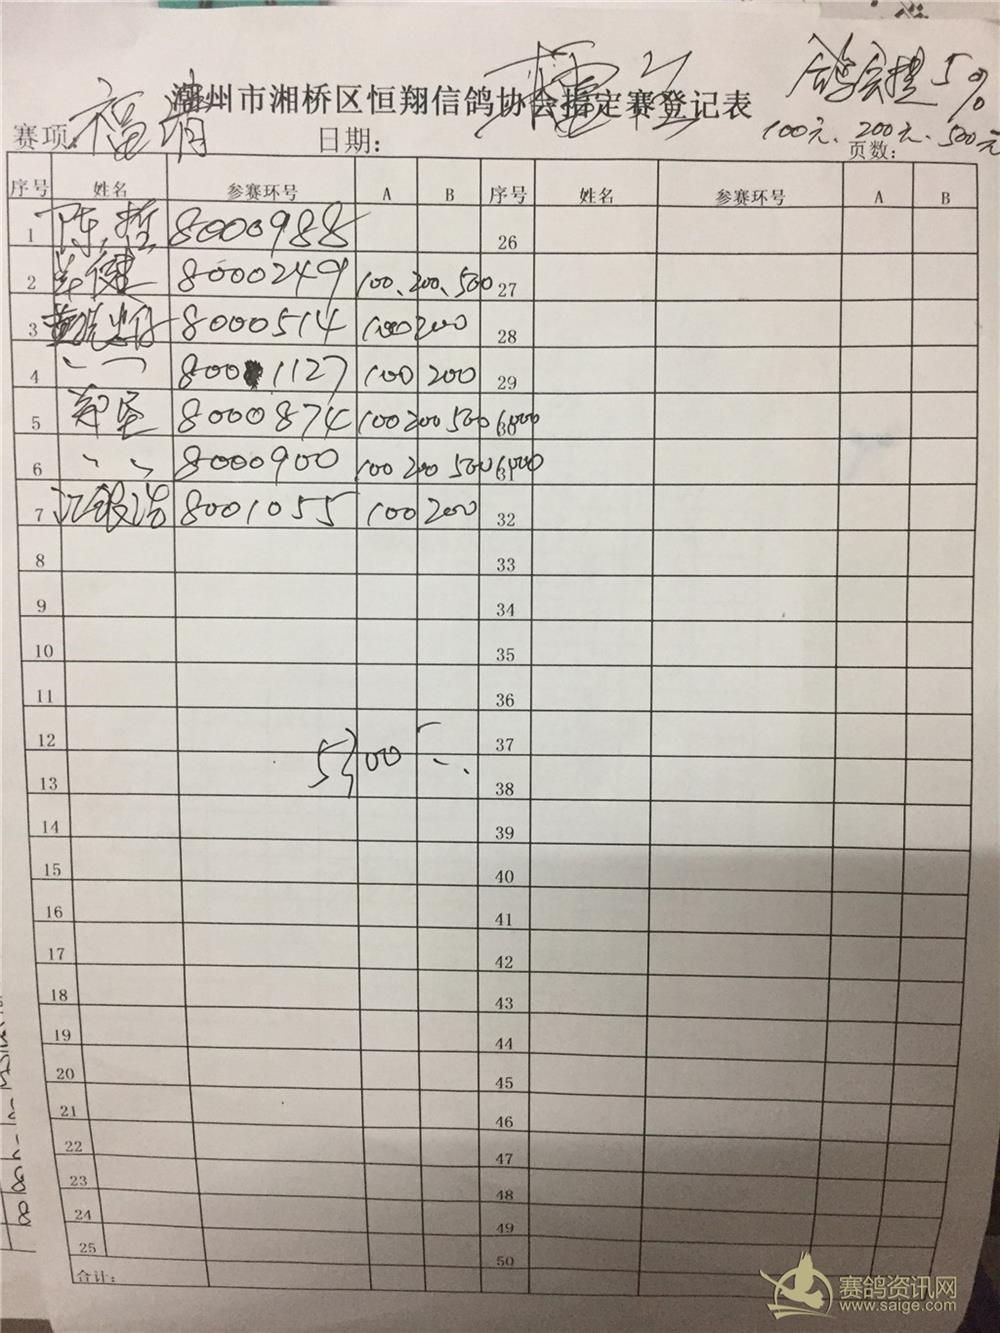 鸽会提5%
潮州市湘桥区恒翔信鸽协会指定赛登记表
100元、200元、500元
赛项: 福清 日期: 页数:
序号 姓名 参赛环号 A B 序号 姓名 参赛环号 A B
1 陈哲 8000988 26
2 8000249 100、200、500 27
3 8000514 100 200 28
4 〃 8001127 100 200 29
5 郑坚 8000874 100 200 500 1000 30
6 〃 8000900 100 200 500 1000 31
7 江银浩 8001055 100 200 32
8 33
9 34
10 35
11 36
12 37
5300
13 38
14 39
15 40
16 41
17 42
18 43
19 44
20 45
21 46
22 47
23 48
24 49
25 50
合计:
赛鸽资讯网
www.saige.com